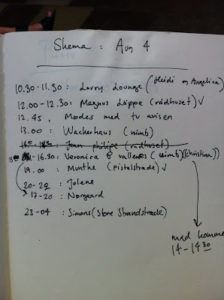 Skema : Aug 4
10.30 - 11.30 : Larry Lounge (Heidi og Angelica)
12.00 - 12.30 : Margus Läppe (rådhuset) ✓
12.45, Mødes med tv avisen
13.00 : Wackerhaus (nimb)
Jean philipe (rådhuset)
- 16.30 : Veronica B vallenti (nimb) (Christina)
19.00 : Munthe (Pistolstræde) ✓
20-22 : Jolene
17-20 : Nørgaard
23-04 : Simons (Store Strandstræde)
med komme
14 - 14 30